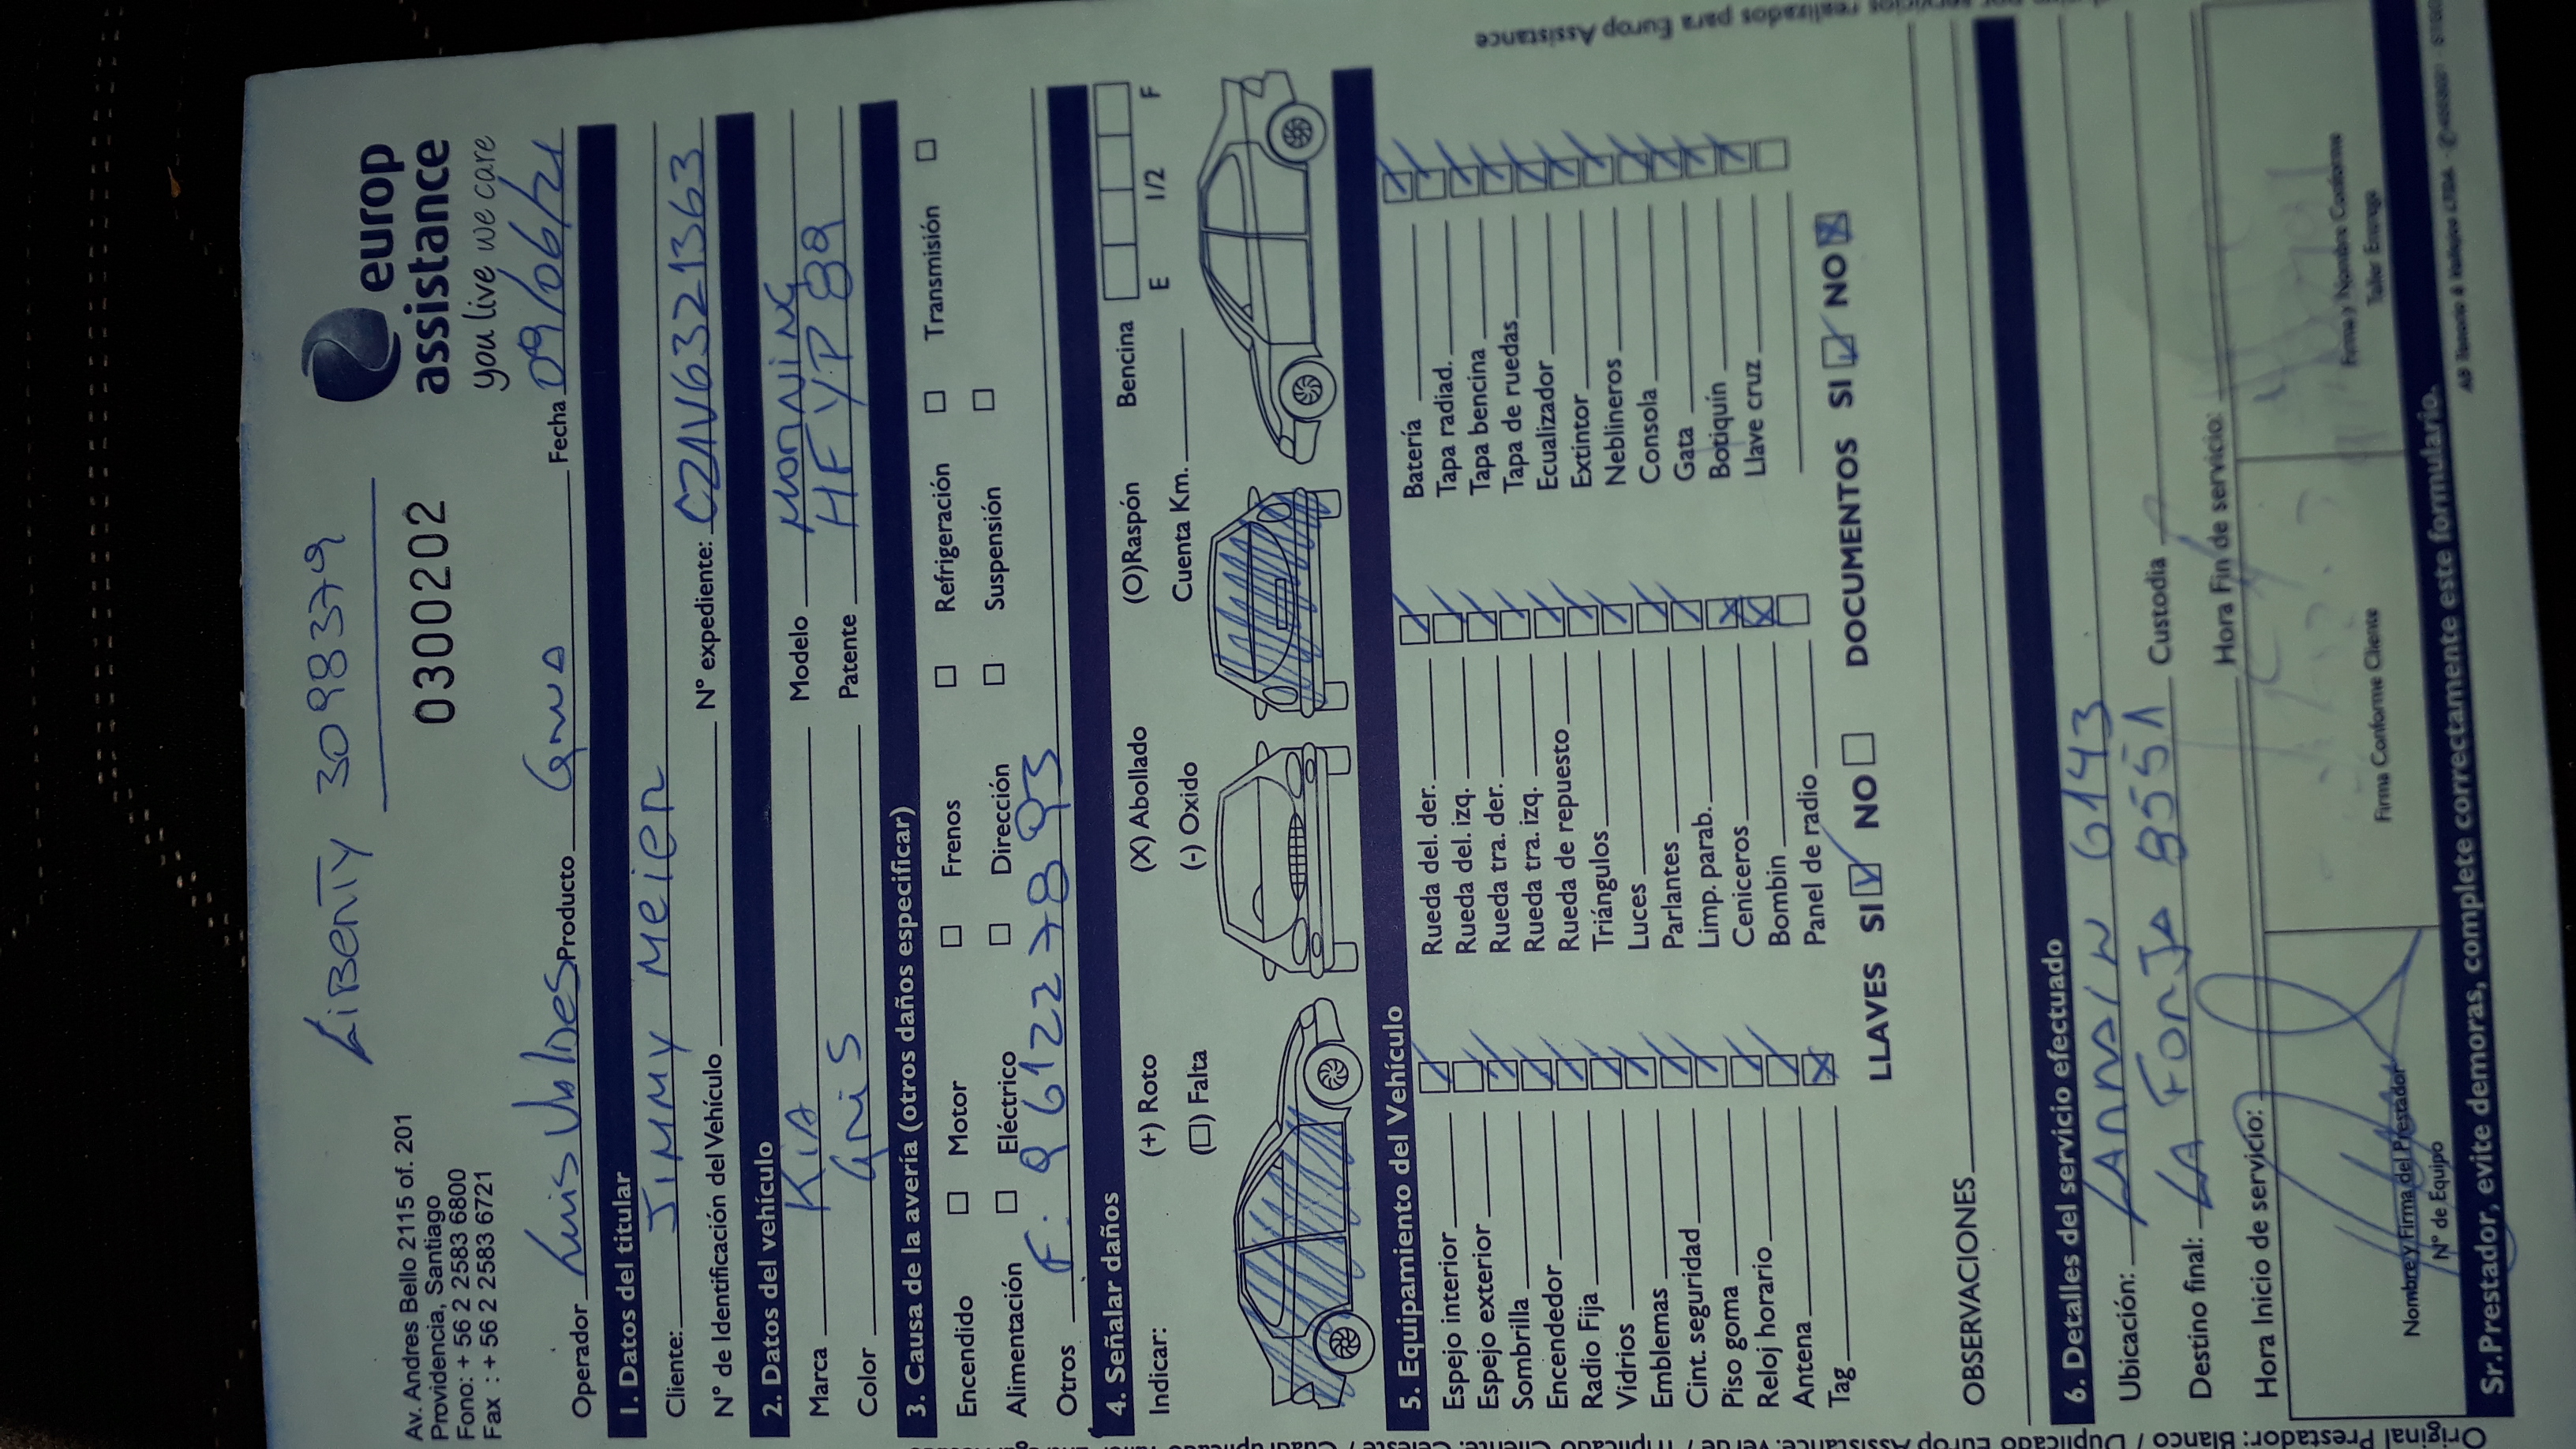 LiBERTY 3098379
Av. Andres Bello 2115 of. 201
Providencia, Santiago
Fono: + 56 2 2583 6800
Fax : + 56 2 2583 6721
0300202
europ
assistance
you live we care
Operador Luis Valdes Producto Grua Fecha 09/06/21
1. Datos del titular
Cliente: JIMMY MEIER
N° de Identificación del Vehículo N° expediente: CZAV6321363
2. Datos del vehículo
Marca KIA Modelo MORNING
Color GRIS Patente HFYP 89
3. Causa de la avería (otros daños especificar)
Encendido Motor Frenos Refrigeración Transmisión
Alimentación Eléctrico Dirección Suspensión
Otros F. 961227893
4. Señalar daños
Indicar: (+) Roto (X) Abollado (O)Raspón Bencina E 1/2 F
(□) Falta (-) Oxido Cuenta Km.
5. Equipamiento del Vehículo
Espejo interior Rueda del. der. Batería
Espejo exterior Rueda del. izq. Tapa radiad.
Sombrilla Rueda tra. der. Tapa bencina
Encendedor Rueda tra. izq. Tapa de ruedas
Radio Fija Rueda de repuesto Ecualizador
Vidrios Triángulos Extintor
Emblemas Luces Neblineros
Cint. seguridad Parlantes Consola
Piso goma Limp. parab. Gata
Reloj horario Ceniceros Botiquín
Antena Bombin Llave cruz
Tag Panel de radio
LLAVES SI NO DOCUMENTOS SI NO
OBSERVACIONES
6. Detalles del servicio efectuado
Ubicación: LARRAIN 6143
Destino final: LA FORJA 8551 Custodia
Hora Inicio de servicio: Hora Fin de servicio:
Nombre y Firma del Prestador Firma Conforme Cliente Firma y Nombre Conforme
N° de Equipo Taller Entrega
Sr. Prestador, evite demoras, complete correctamente este formulario.
realizados para Europ Assistance
Original Prestador: Blanco / Duplicado Europ Assistance: Verde /